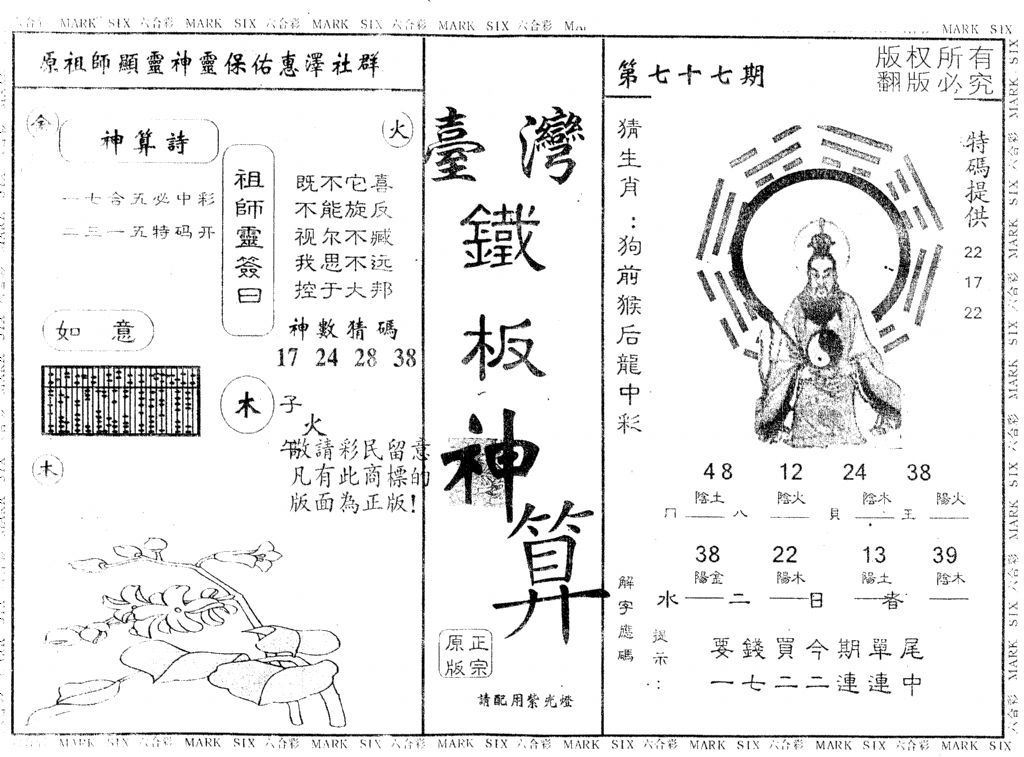 MARK SIX 六合彩 MARK SIX 六合彩 MARK SIX 六合彩 MARK SIX 六合彩 MARK SIX
原祖師顯靈神靈保佑惠澤社群
金
火
神算詩
一七合五必中彩
二三一五特码开
祖師靈簽曰
既不它喜
不能旋反
视尔不臧
我思不远
控于大邦
如意
神數猜碼
17 24 28 38
木
子
火
午
敬請彩民留意
凡有此商標的
版面為正版!
木
臺灣
鐵
板
神
算
正宗
原版
請配用紫光燈
第七十七期
版权所有
翻版必究
猜生肖:狗前猴后龍中彩
特碼提供
22
17
22
48 12 24 38
陰土 陰火 陰木 陽火
冂 八 貝 王
38 22 13 39
陽金 陽木 陽土 陰木
水 二 日 者
解字應碼
提示:
要錢買今期單尾
一七二二連連中
MARK SIX 六合彩 MARK SIX 六合彩 MARK SIX 六合彩 MARK SIX 六合彩 MARK SIX 六合彩 MARK SIX 六合彩 MARK SIX 六合彩 MARK SIX